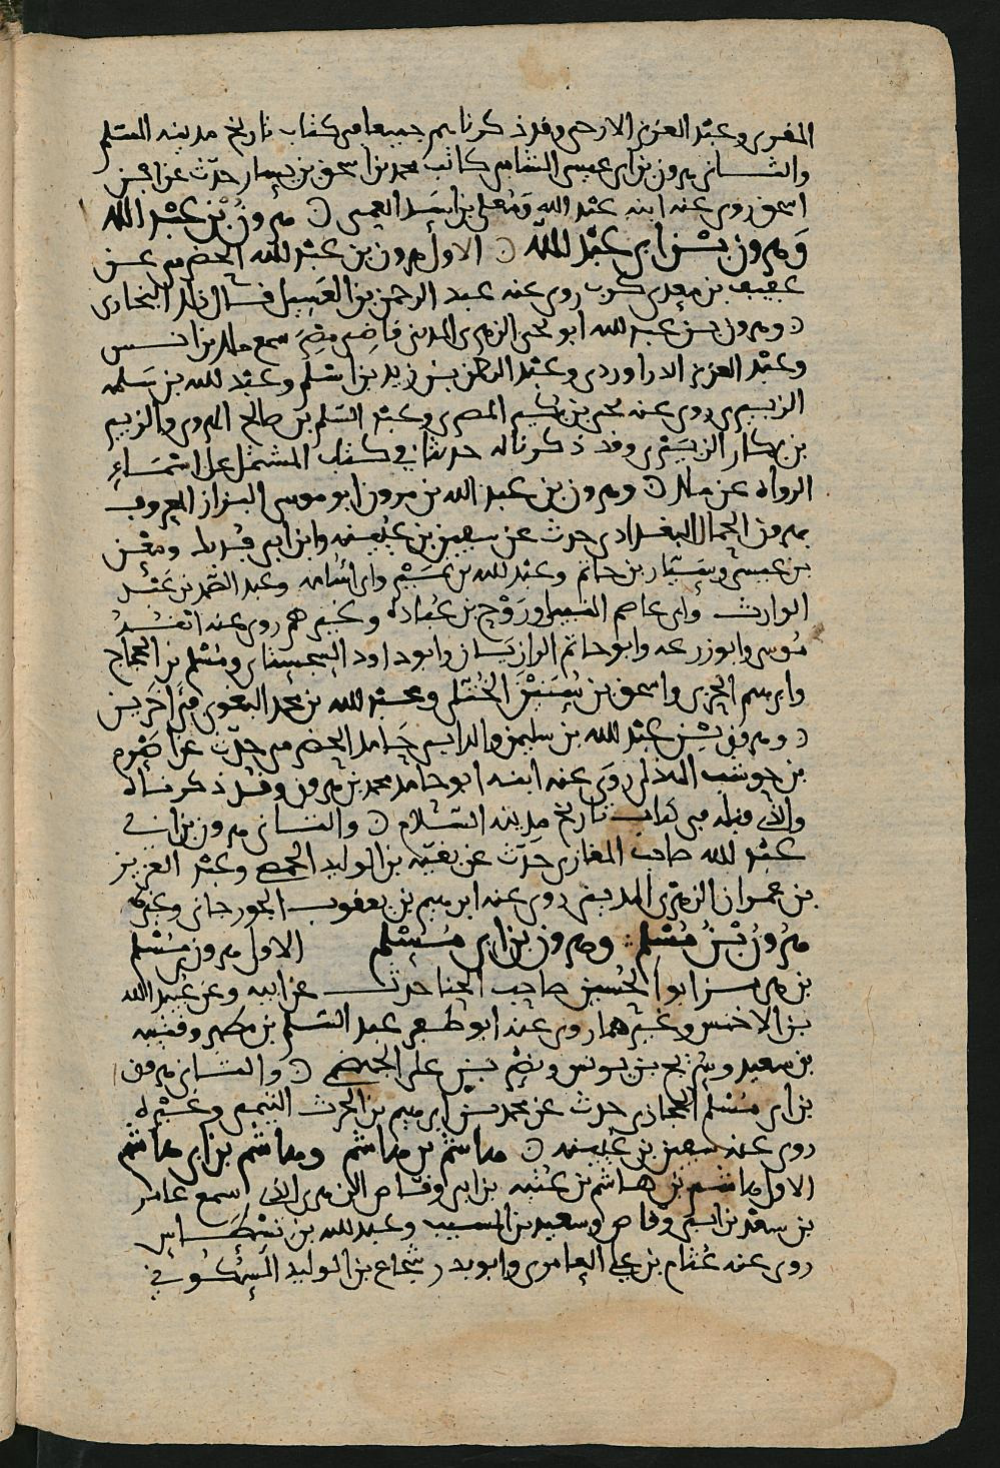 المقرى وعبد العزيز الازجى وقد ذكرناهم جميعا فى كتاب تاريخ مدينه السلم
والثانى هرون بن ابى عيسى الشامى كاتب محمد بن اسحق بن يسار حدث عن ابن
اسحق روى عنه ابنه عبد الله ومعلى بن اسد العمى ۞ هرون بن عبد الله
وهرون بن ابى عبد الله ۞ الاول هرون بن عبد الله الحضرمى عن
عفيف بن معدى كرب روى عنه عبد الرحمن بن الغسيل قال ذلك البخارى
۞ وهرون بن عبد الله ابو يحيى الزهرى المدنى قاضى مصر سمع ملك بن انس
وعبد العزيز الدراوردى وعبد الرحمن بن زيد بن اسلم وعبد الله بن سلمه
الزبيرى روى عنه يحيى بن بكير المصرى وعبد السلم بن صالح الهروى والزبير
بن بكار الزبيرى وقد ذكرنا له حديثا فى كتاب المشتمل على اسماء
الرواه عن ملك ۞ وهرون بن عبد الله بن مرون ابو موسى البزاز المعروف
بهرون الحمال البغدادى حدث عن سفين بن عيينه وابن ابى فديك ومعن
بن عيسى وسيار بن حاتم وعبد الله بن نمير وابى اسامه وعبد الصمد بن عبد
الوارث وابى عاصم النبيل وروح بن عباده وغيرهم روى عنه ابنه
موسى وابو زرعه وابو حاتم الرازيان وابو داود السجستانى ومسلم بن الحجاج
وابرهيم الحربى واسحق بن سنين الختلى وعبد الله بن محمد البغوى فى آخرين
۞ وهرون بن عبد الله بن سليمن والد ابى حامد الحضرمى حدث عن اصرم
بن حوشب الهمذانى روى عنه ابنه ابو حامد محمد بن هرون وقد ذكرناه
والذى قبله فى كتاب تاريخ مدينه السلام ۞ والثانى هرون بن ابى
عبد الله صاحب المغازى حدث عن بقيه بن الوليد الحمصى وعبد العزيز
بن عمران الزهرى المدينى روى عنه ابرهيم بن يعقوب الجوزجانى وغيره
هرون بن مسلم وهرون بن ابى مسلم الاول هرون بن مسلم
بن هرمز ابو الحسين صاحب الحنا حدث عن ابيه وعن عبيد الله
بن الاخنس وغيرهما روى عنه ابو ظفر عبد السلم بن مطهر وقتيبه
بن سعيد وسريج بن يونس ونصر بن على الجهضمى ۞ والثانى هرون
بن ابى مسلم الحجازى حدث عن محمد بن ابرهيم بن الحرث التيمى وغيره
روى عنه سفين بن عيينه ۞ هاشم بن هاشم وهاشم بن ابى هاشم
الاول هاشم بن هاشم بن عتبه بن ابى وقاص الزهرى المدنى سمع عامر
بن سعد بن ابى وقاص وسعيد بن المسيب وعبد الله بن نسطاس
روى عنه عثام بن على العامرى وابو بدر شجاع بن الوليد السكونى